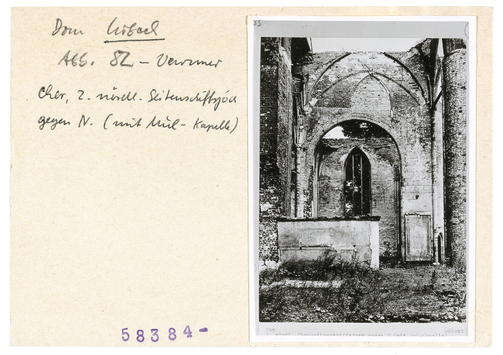 Dom Lübeck
Abb. 82 –
Chor, 2. nördl. Seitenschiffsjoch
gegen N. (mit Mül-Kapelle)
58384-